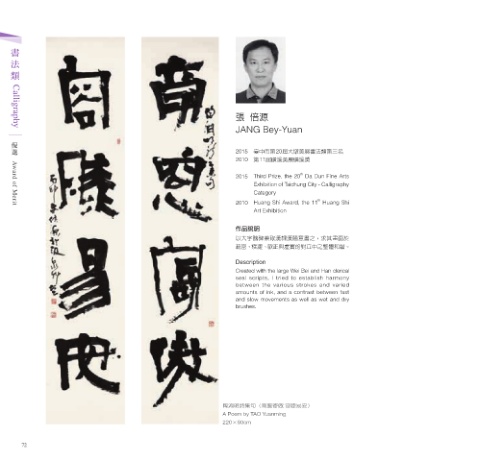 書法類 Calligraphy
優選 Award of Merit
南窗寄傲
容膝易安
張 倍源
JANG Bey-Yuan
2015 臺中市第20屆大墩美展書法類第三名
2010 第11屆磺溪美展磺溪獎
2015 Third Prize, the 20th Da Dun Fine Arts
Exhibition of Taichung City - Calligraphy
Category
2010 Huang Shi Award, the 11th Huang Shi
Art Exhibition
作品說明
Description
Created with the large Wei Bei and Han clerical
seal scripts, I tried to establish harmony
between the various strokes and varied
amounts of ink, and a contrast between fast
and slow movements as well as wet and dry
brushes.
A Poem by TAO Yuanming
72